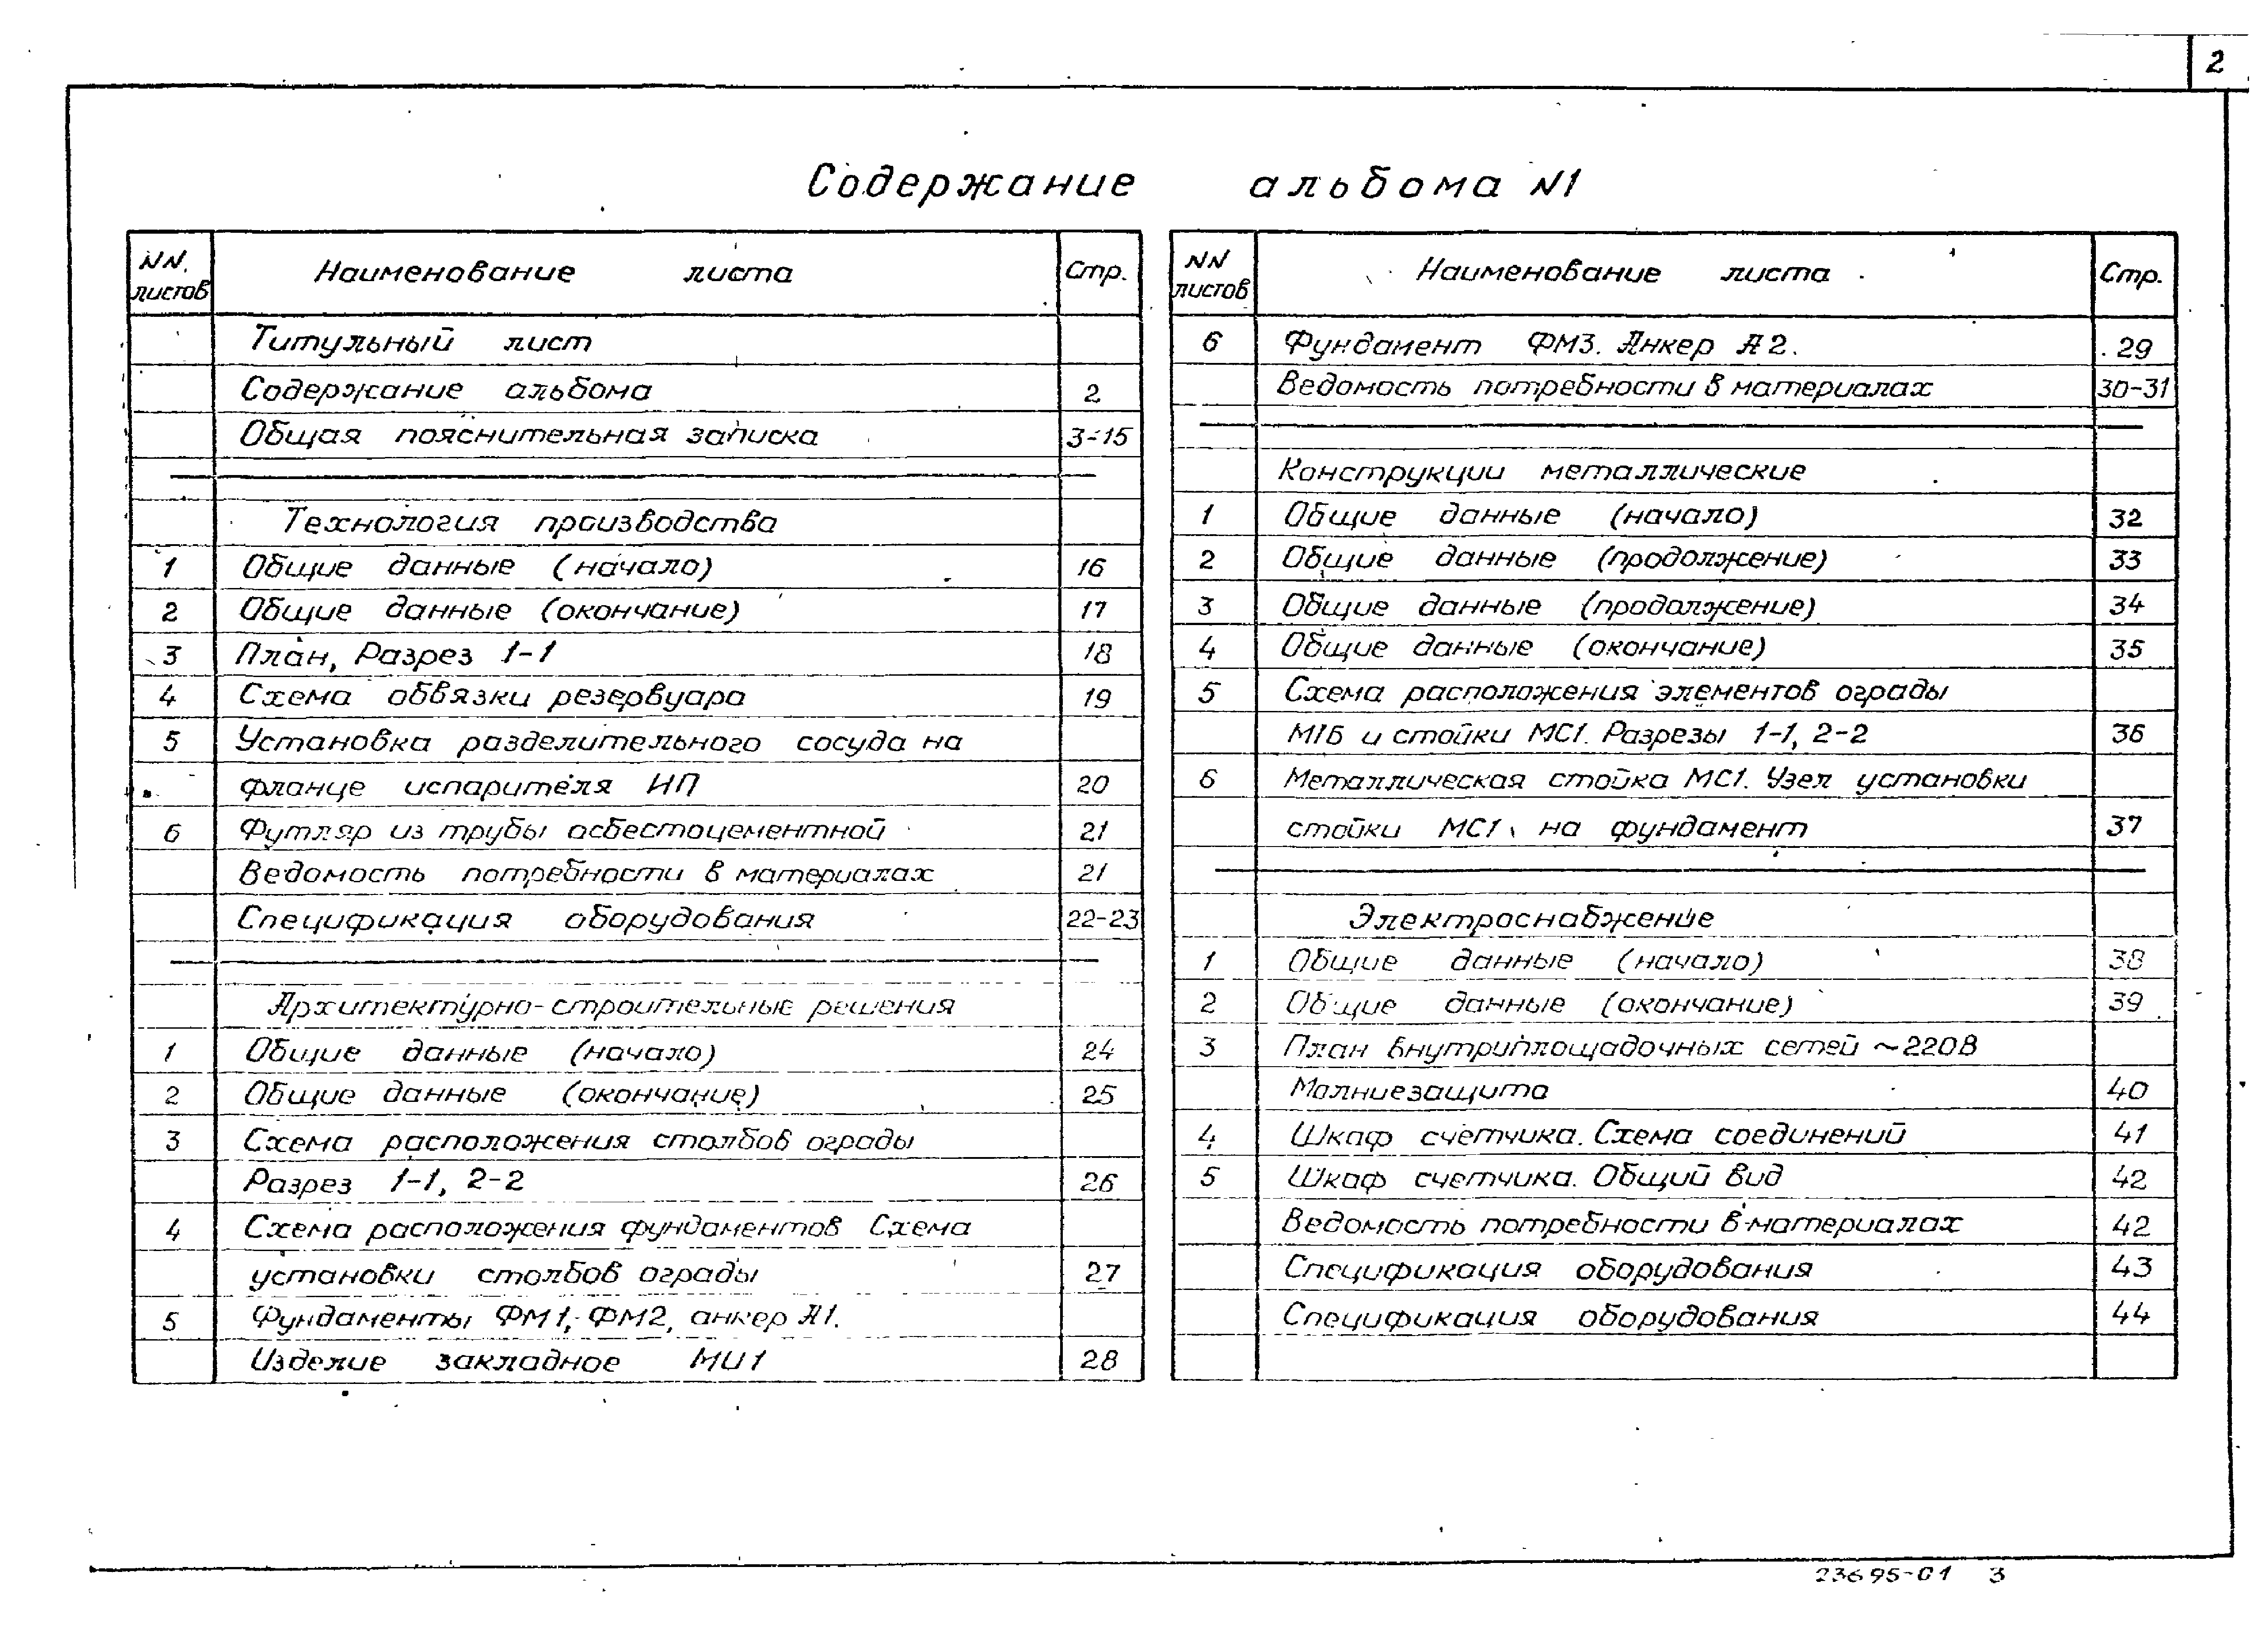 2
Содержание альбома N1
NN. листов Наименование листа Стр.
Титульный лист
Содержание альбома 2
Общая пояснительная записка 3-15
Технология производства
1 Общие данные (начало) 16
2 Общие данные (окончание) 17
3 План, Разрез 1-1 18
4 Схема обвязки резервуара 19
5 Установка разделительного сосуда на
фланце испарителя ИП 20
6 Футляр из трубы асбестоцементной 21
Ведомость потребности в материалах 21
Спецификация оборудования 22-23
Архитектурно-строительные решения
1 Общие данные (начало) 24
2 Общие данные (окончание) 25
3 Схема расположения столбов ограды
Разрез 1-1, 2-2 26
4 Схема расположения фундаментов Схема
установки столбов ограды 27
5 Фундаменты ФМ1, ФМ2, анкер А1.
Изделие закладное МИ1 28
NN листов Наименование листа Стр.
6 Фундамент ФМ3. Анкер А2. 29
Ведомость потребности в материалах 30-31
Конструкции металлические
1 Общие данные (начало) 32
2 Общие данные (продолжение) 33
3 Общие данные (продолжение) 34
4 Общие данные (окончание) 35
5 Схема расположения элементов ограды
М1Б и стойки МС1. Разрезы 1-1, 2-2 36
6 Металлическая стойка МС1. Узел установки
стойки МС1 на фундамент 37
Электроснабжение
1 Общие данные (начало) 38
2 Общие данные (окончание) 39
3 План внутриплощадочных сетей ~220В
Молниезащита 40
4 Шкаф счетчика. Схема соединений 41
5 Шкаф счетчика. Общий вид 42
Ведомость потребности в материалах 42
Спецификация оборудования 43
Спецификация оборудования 44
23695-01 3